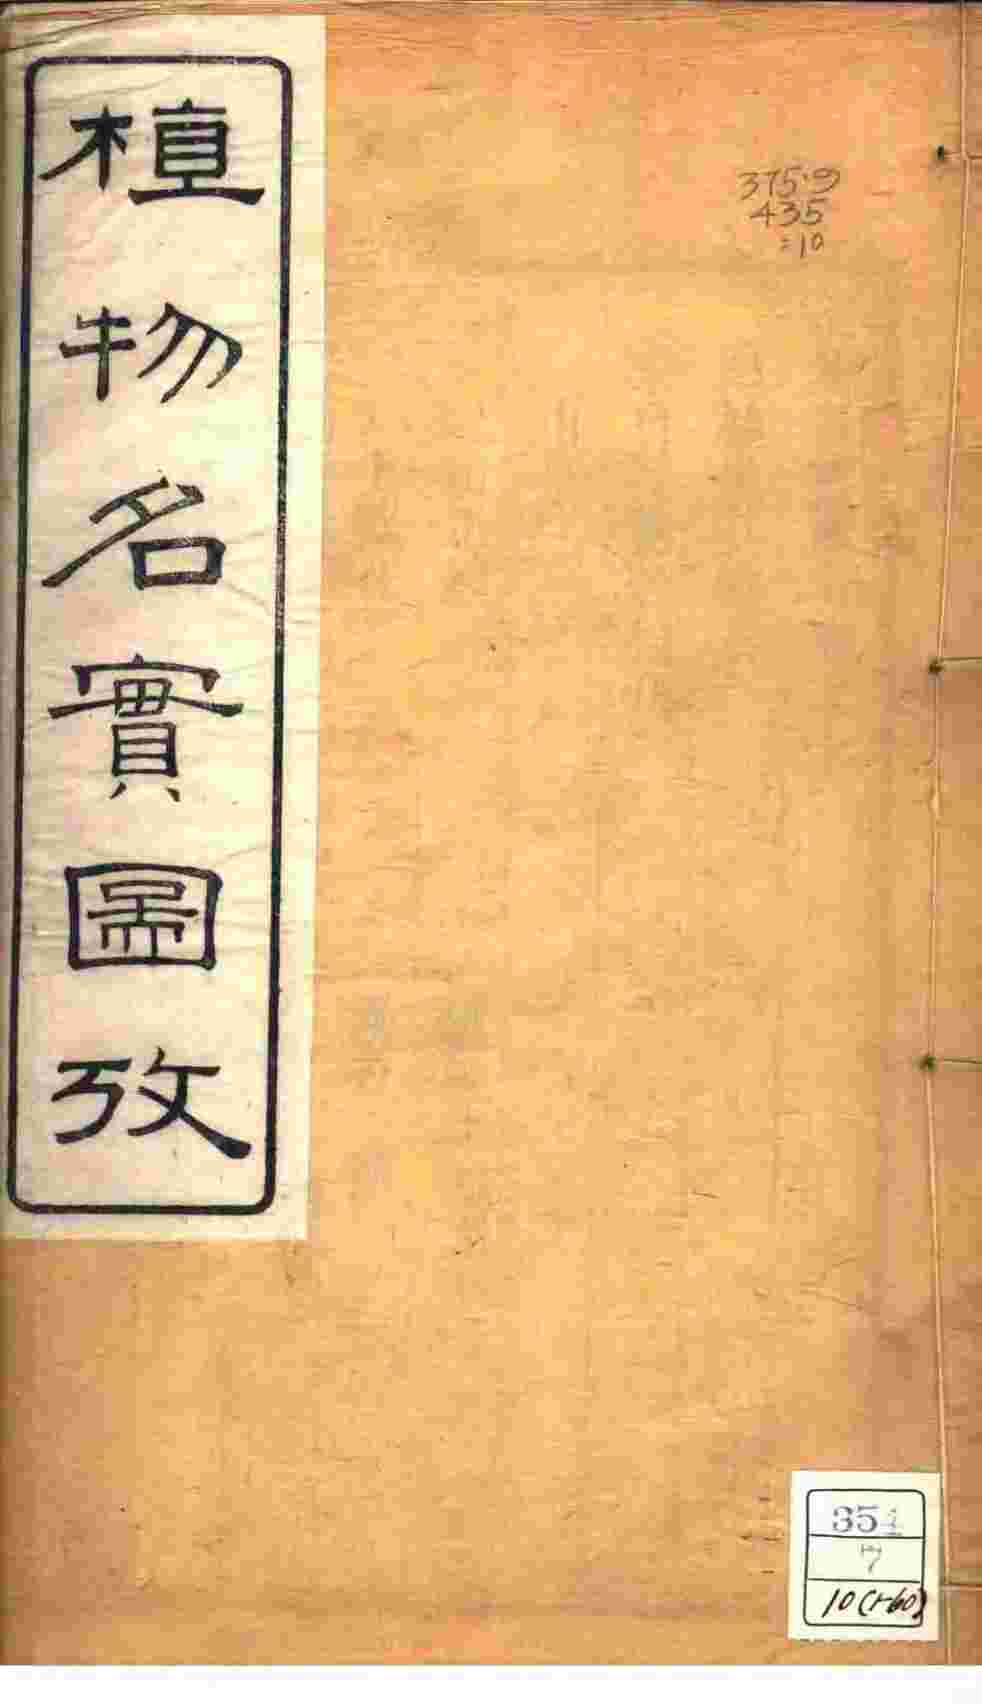 植物名實圖攷
375.9
435
=10
354
7
10(r60)